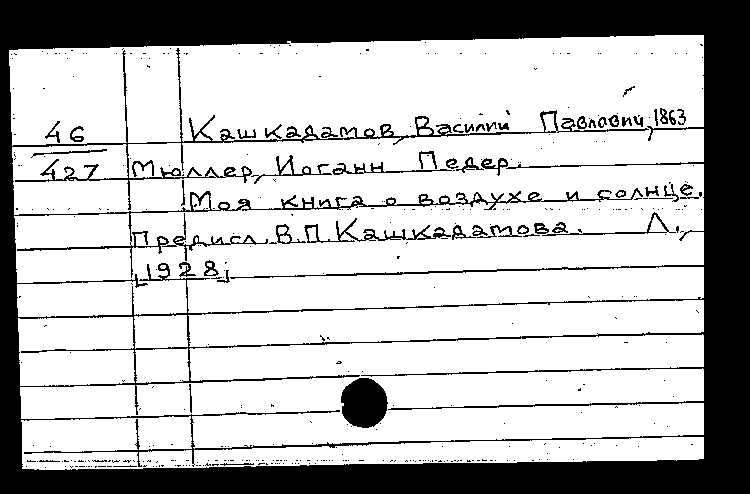 46 Кашкадамов, Василий Павлович, 1863
427 Мюллер, Иоганн Педер.
Моя книга о воздухе и солнце.
Предисл. В.П. Кашкадамова. Л.,
[1928]